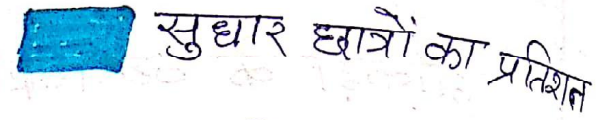 सुधार छात्रों का प्रतिशत